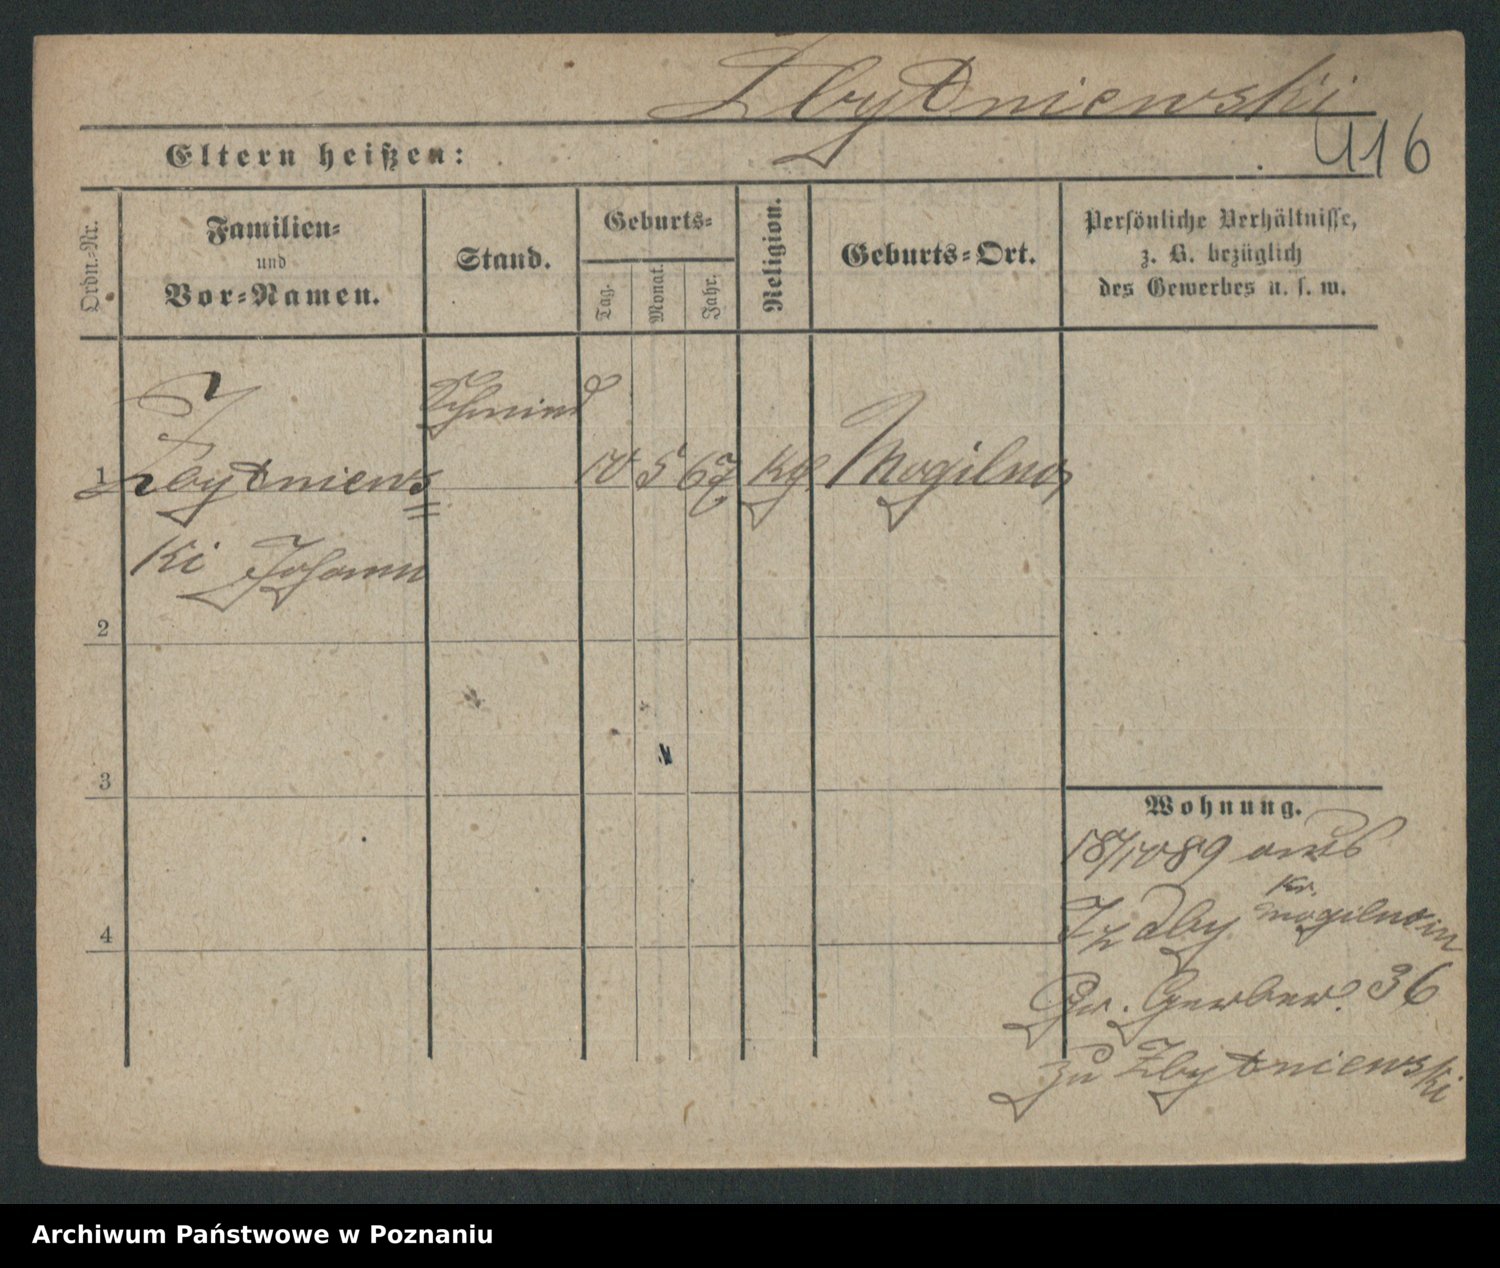 Zbytniewski
416
Eltern heißen:
Ordn.-Nr.
Familien-
und
Vor-Namen.
Stand.
Geburts-
Tag.
Monat.
Jahr.
Religion.
Geburts-Ort.
Persönliche Verhältnisse,
z. B. bezüglich
des Gewerbes u. s. w.
Schmied
1 Zbytniews= 10 5 67 Kg. Mogilno
ki Johann
2
3
4
Wohnung.
18/10 89 aus
Kr.
Izdby Mogilno in
Gr. Gerber. 36
zu Zbytniewski
Archiwum Państwowe w Poznaniu